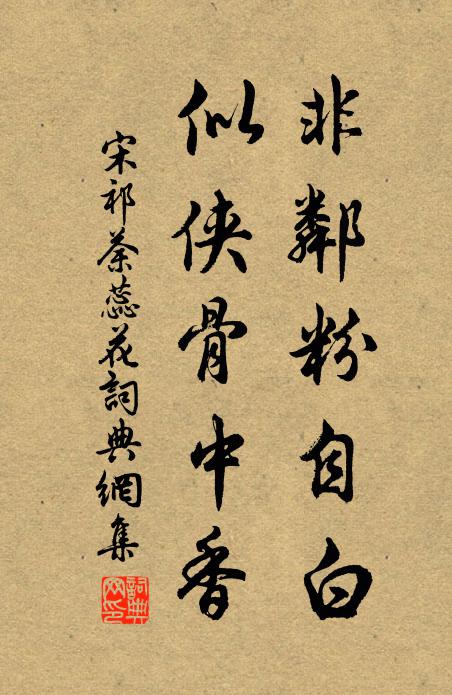 非鄰粉自白
似俠骨中香
宋祁荼蕊花詞典網集
詞典網印